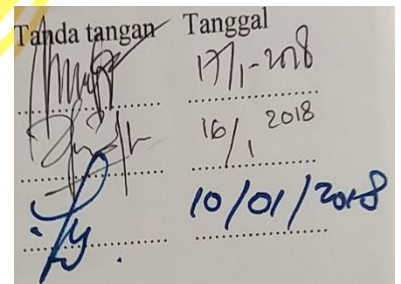 Tanda tangan Tanggal
17/1-2018
16/1 2018
10/01/2018